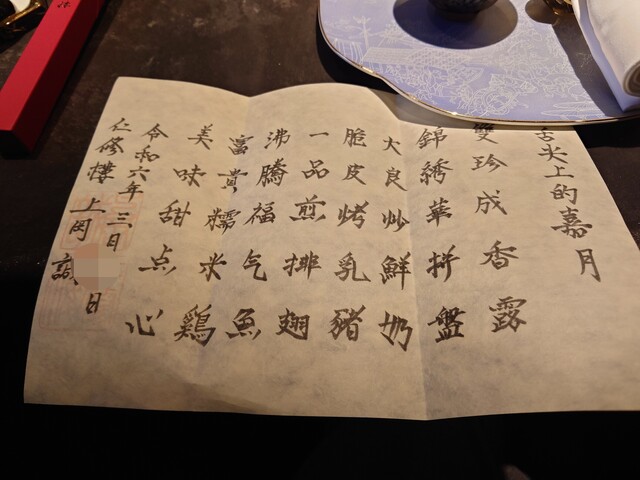 舌尖上的嘉月
雙珍成香露
錦綉華拼盤
大良炒鮮奶
脆皮烤乳豬
一品煎排翅
沸騰福气魚
富貴糯米鷄
美味甜点心
令和六年三月 日
仁修樓 上岡 誠